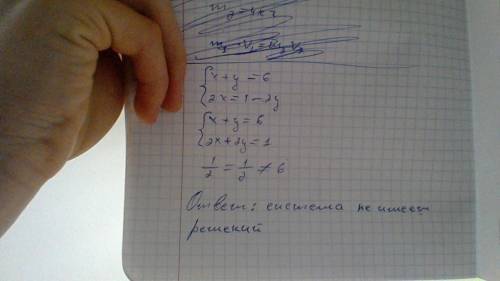 x+y=6
2x=1-2y
x+y=6
2x+2y=1
1/2=1/2≠6
Ответ: система не имеет
решений